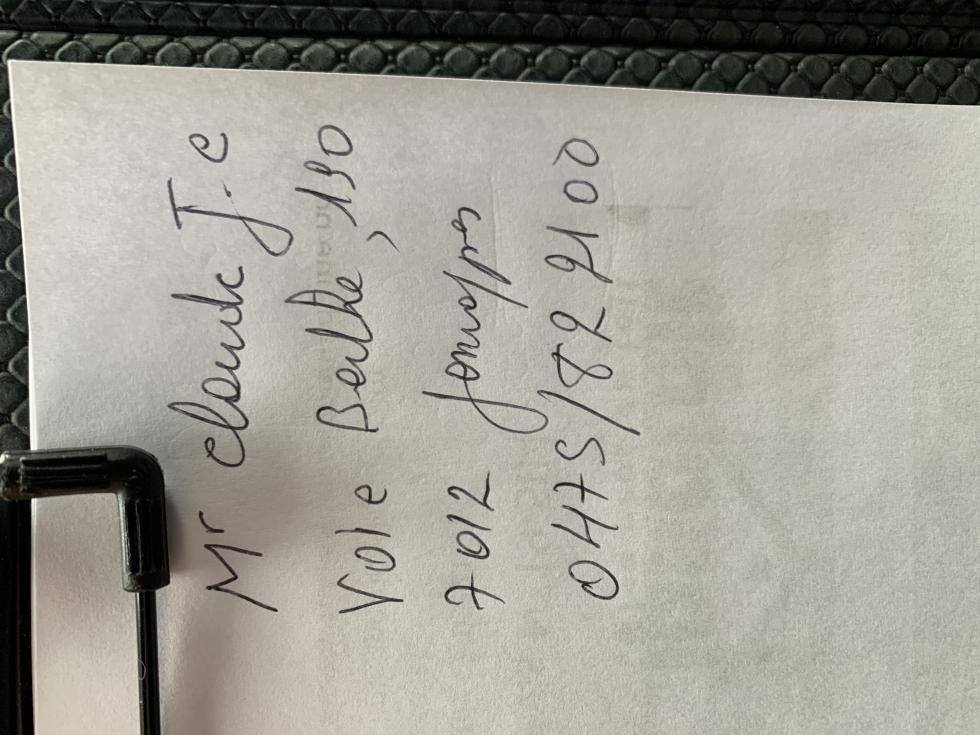 Mr Claude J.C
Voie Berthe, 190
7012 Jemappes
0475/82 21 00